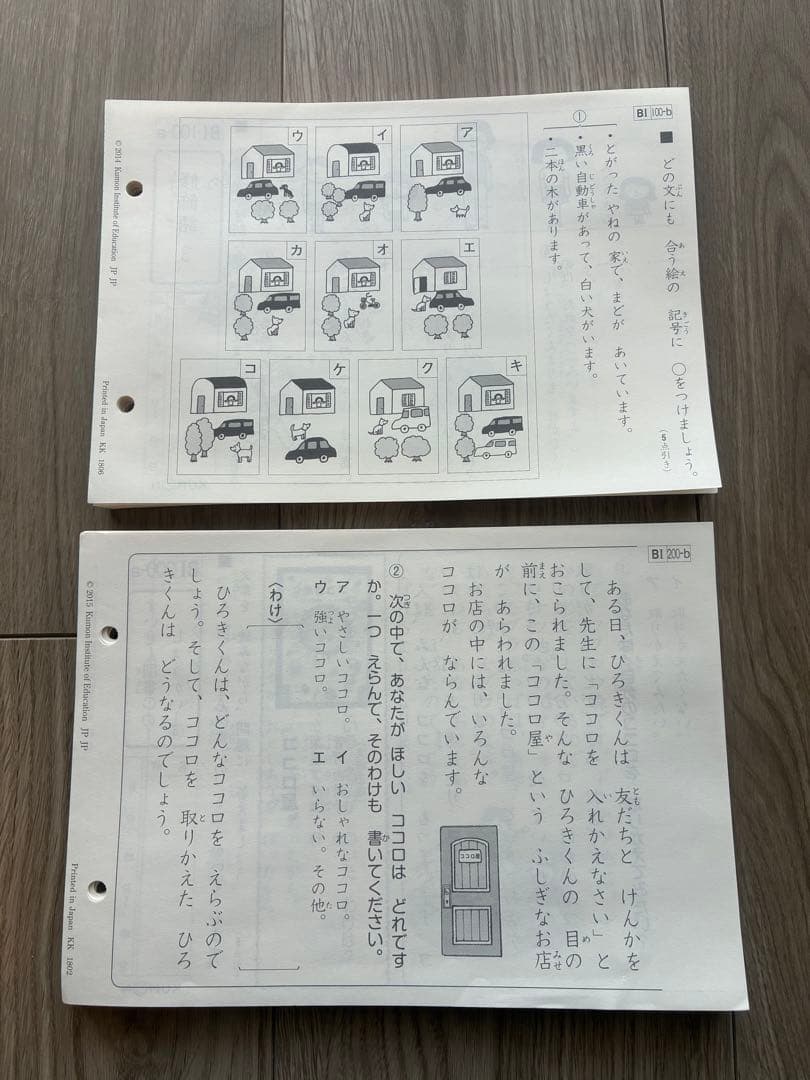 BI 100-b
■ どの文にも 合う絵の 記号に ○をつけましょう。
ぶん あ え きごう
(5点引き)
①
・とがった やねの 家で、まどが あいています。
いえ
・黒い自動車があって、白い犬がいます。
くろ じどうしゃ
・二本の木があります。
ほん
ア
イ
ウ
エ
オ
カ
キ
ク
ケ
コ
© 2014 Kumon Institute of Education JP JP
Printed in Japan KK 1806
BI 200-b
ある日、ひろきくんは 友だちと けんかを
とも
して、先生に「ココロを 入れかえなさい」と
い
おこられました。そんな ひろきくんの 目の
め
前に、この「ココロ屋」という ふしぎなお店
まえ や みせ
が あらわれました。
お店の中には、いろんな
ココロが ならんでいます。
ココロ屋
② 次の中で、あなたが ほしい ココロは どれです
つぎ
か。一つ えらんで、そのわけも 書いてください。
か
ア やさしいココロ。 イ おしゃれなココロ。
ウ 強いココロ。 エ いらない。その他。
つよ た
〈わけ〉
ひろきくんは、どんなココロを えらぶので
しょう。そして、ココロを 取りかえた ひろ
と
きくんは どうなるのでしょう。
© 2015 Kumon Institute of Education JP JP
Printed in Japan KK 1802